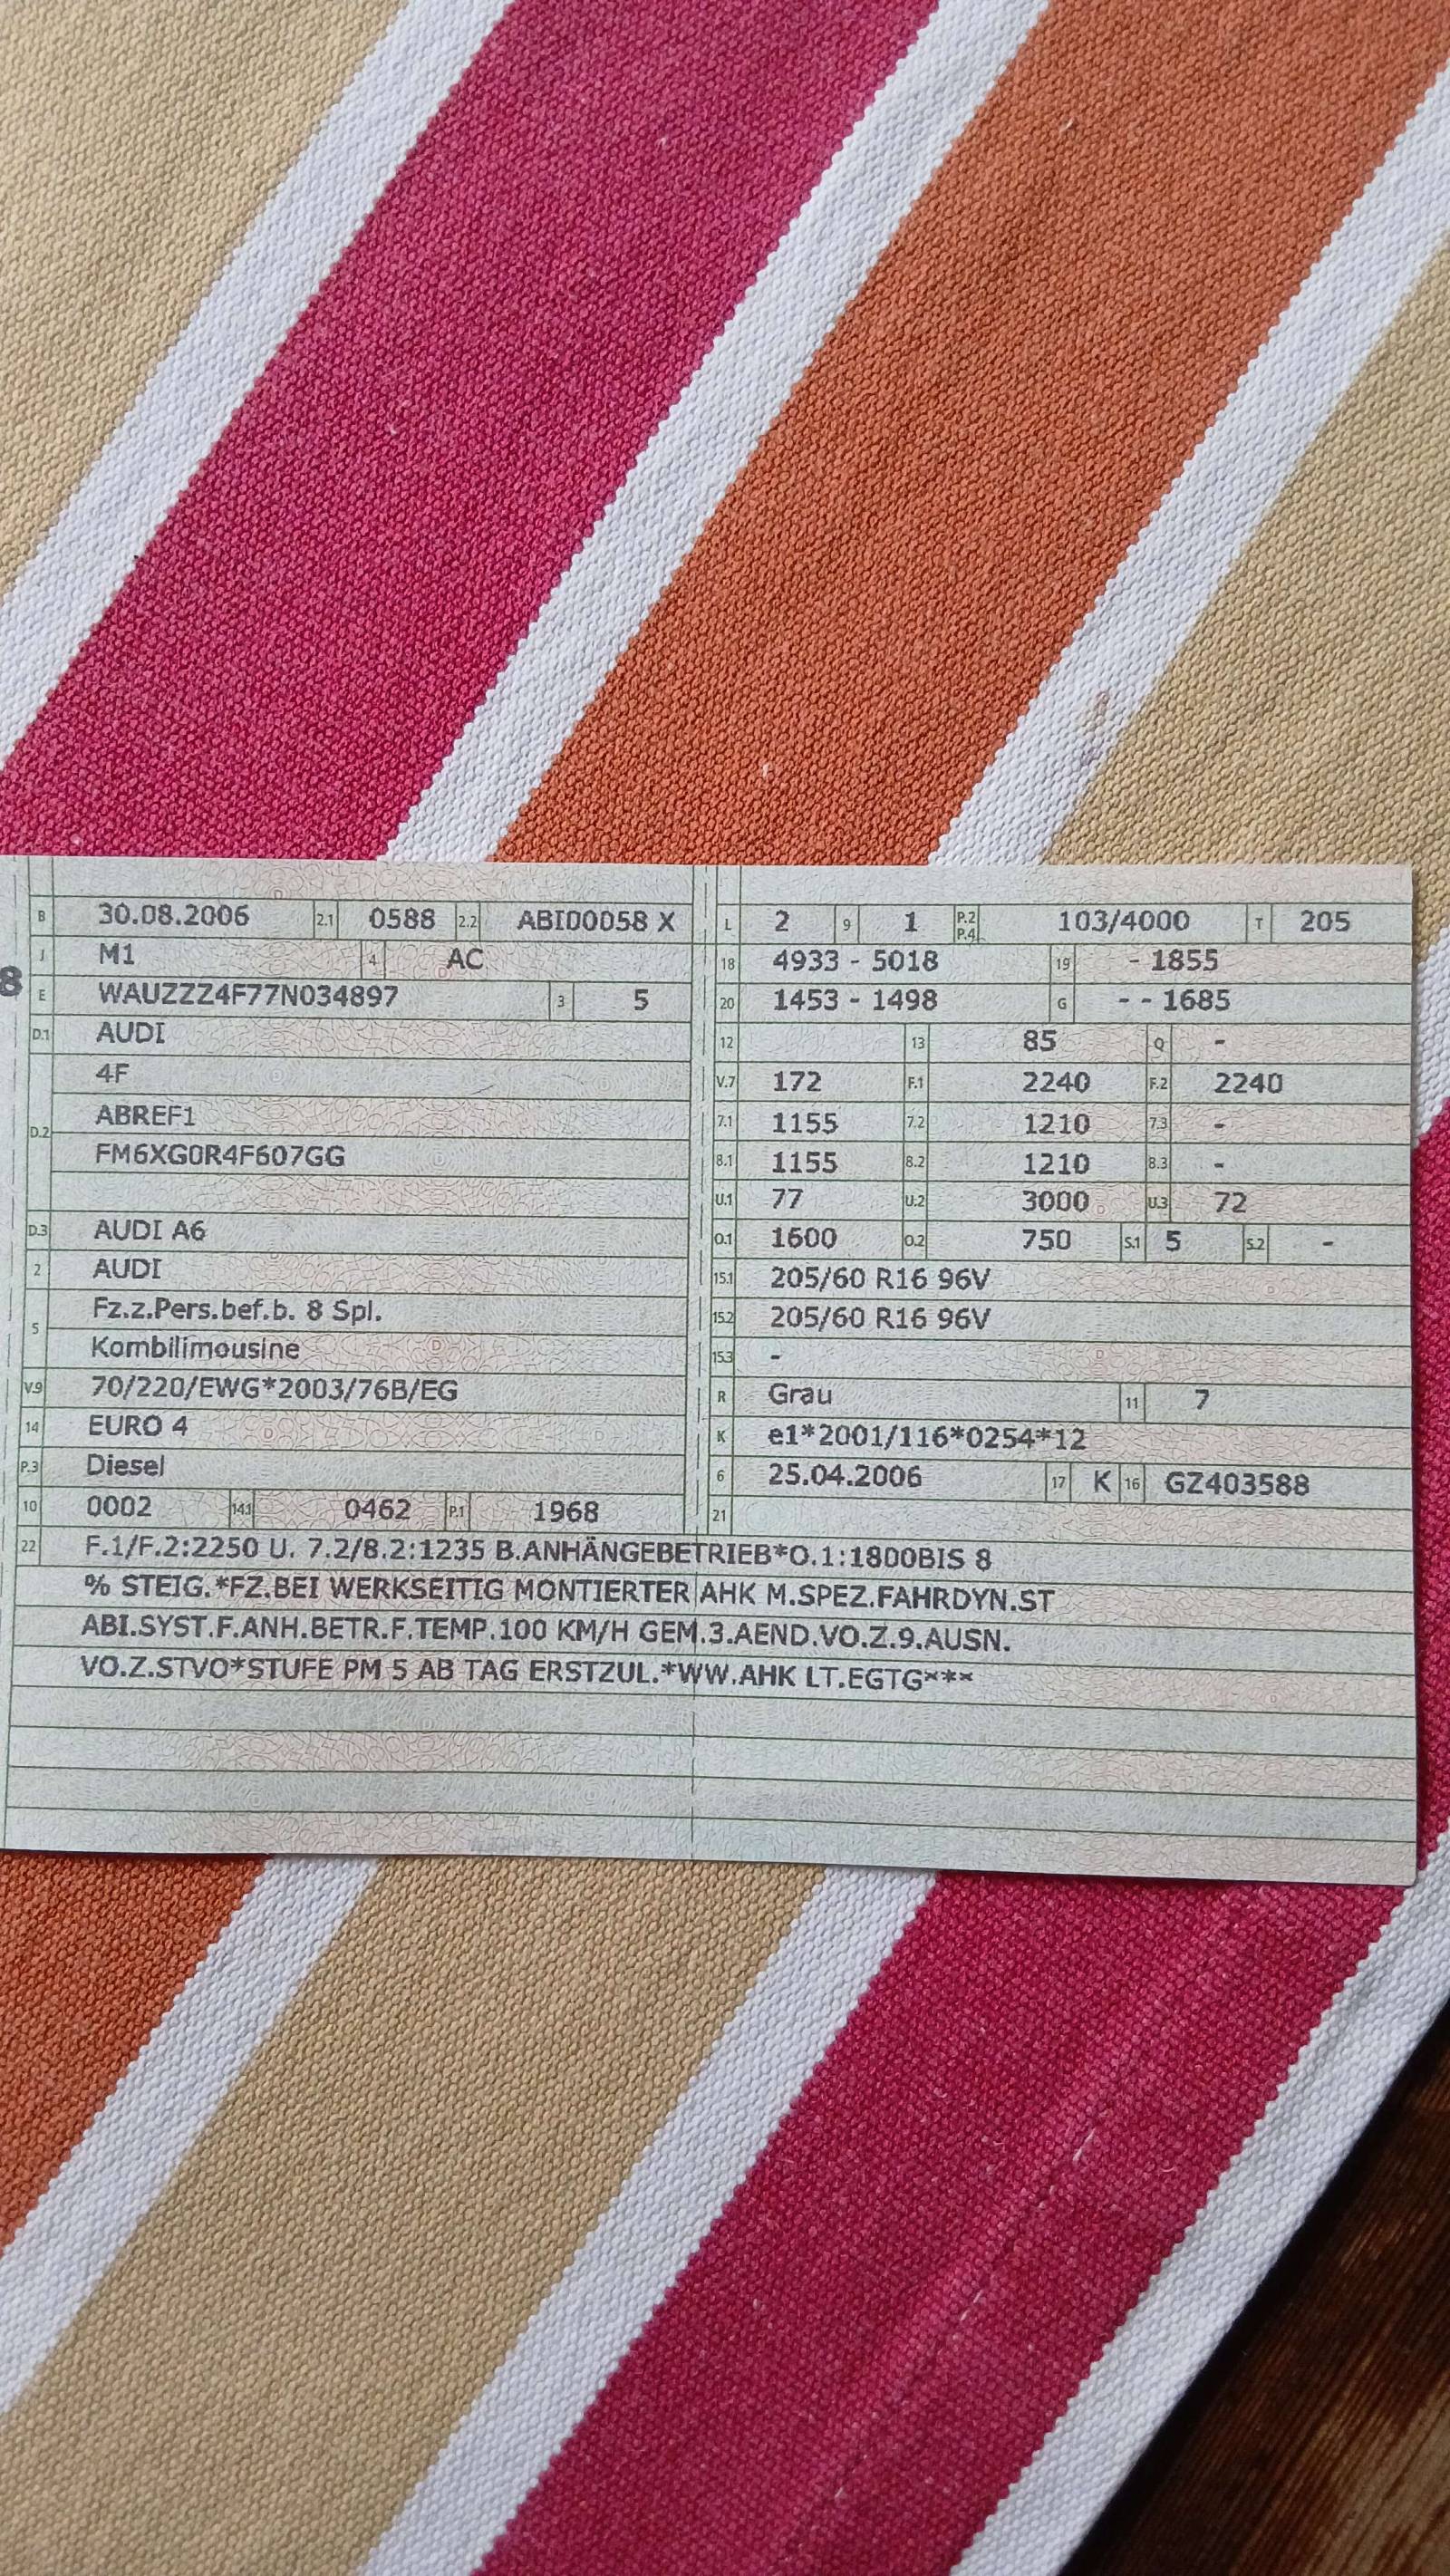 B 30.08.2006 2.1 0588 2.2 ABI00058 X
J M1 4 AC
8
E WAUZZZ4F77N034897 3 5
D.1 AUDI
4F
D.2 ABREF1
FM6XG0R4F607GG
D.3 AUDI A6
2 AUDI
5 Fz.z.Pers.bef.b. 8 Spl.
Kombilimousine
V.9 70/220/EWG*2003/76B/EG
14 EURO 4
P.3 Diesel
10 0002 14.1 0462 P.1 1968
L 2 9 1 P.2 P.4 103/4000 T 205
18 4933 - 5018 19 - 1855
20 1453 - 1498 G - - 1685
12 13 85 Q -
V.7 172 F.1 2240 F.2 2240
7.1 1155 7.2 1210 7.3 -
8.1 1155 8.2 1210 8.3 -
U.1 77 U.2 3000 U.3 72
O.1 1600 O.2 750 S.1 5 S.2 -
15.1 205/60 R16 96V
15.2 205/60 R16 96V
15.3 -
R Grau 11 7
K e1*2001/116*0254*12
6 25.04.2006 17 K 16 GZ403588
21
22 F.1/F.2:2250 U. 7.2/8.2:1235 B.ANHÄNGEBETRIEB*O.1:1800BIS 8
% STEIG.*FZ.BEI WERKSEITIG MONTIERTER AHK M.SPEZ.FAHRDYN.ST
ABI.SYST.F.ANH.BETR.F.TEMP.100 KM/H GEM.3.AEND.VO.Z.9.AUSN.
VO.Z.STVO*STUFE PM 5 AB TAG ERSTZUL.*WW.AHK LT.EGTG***